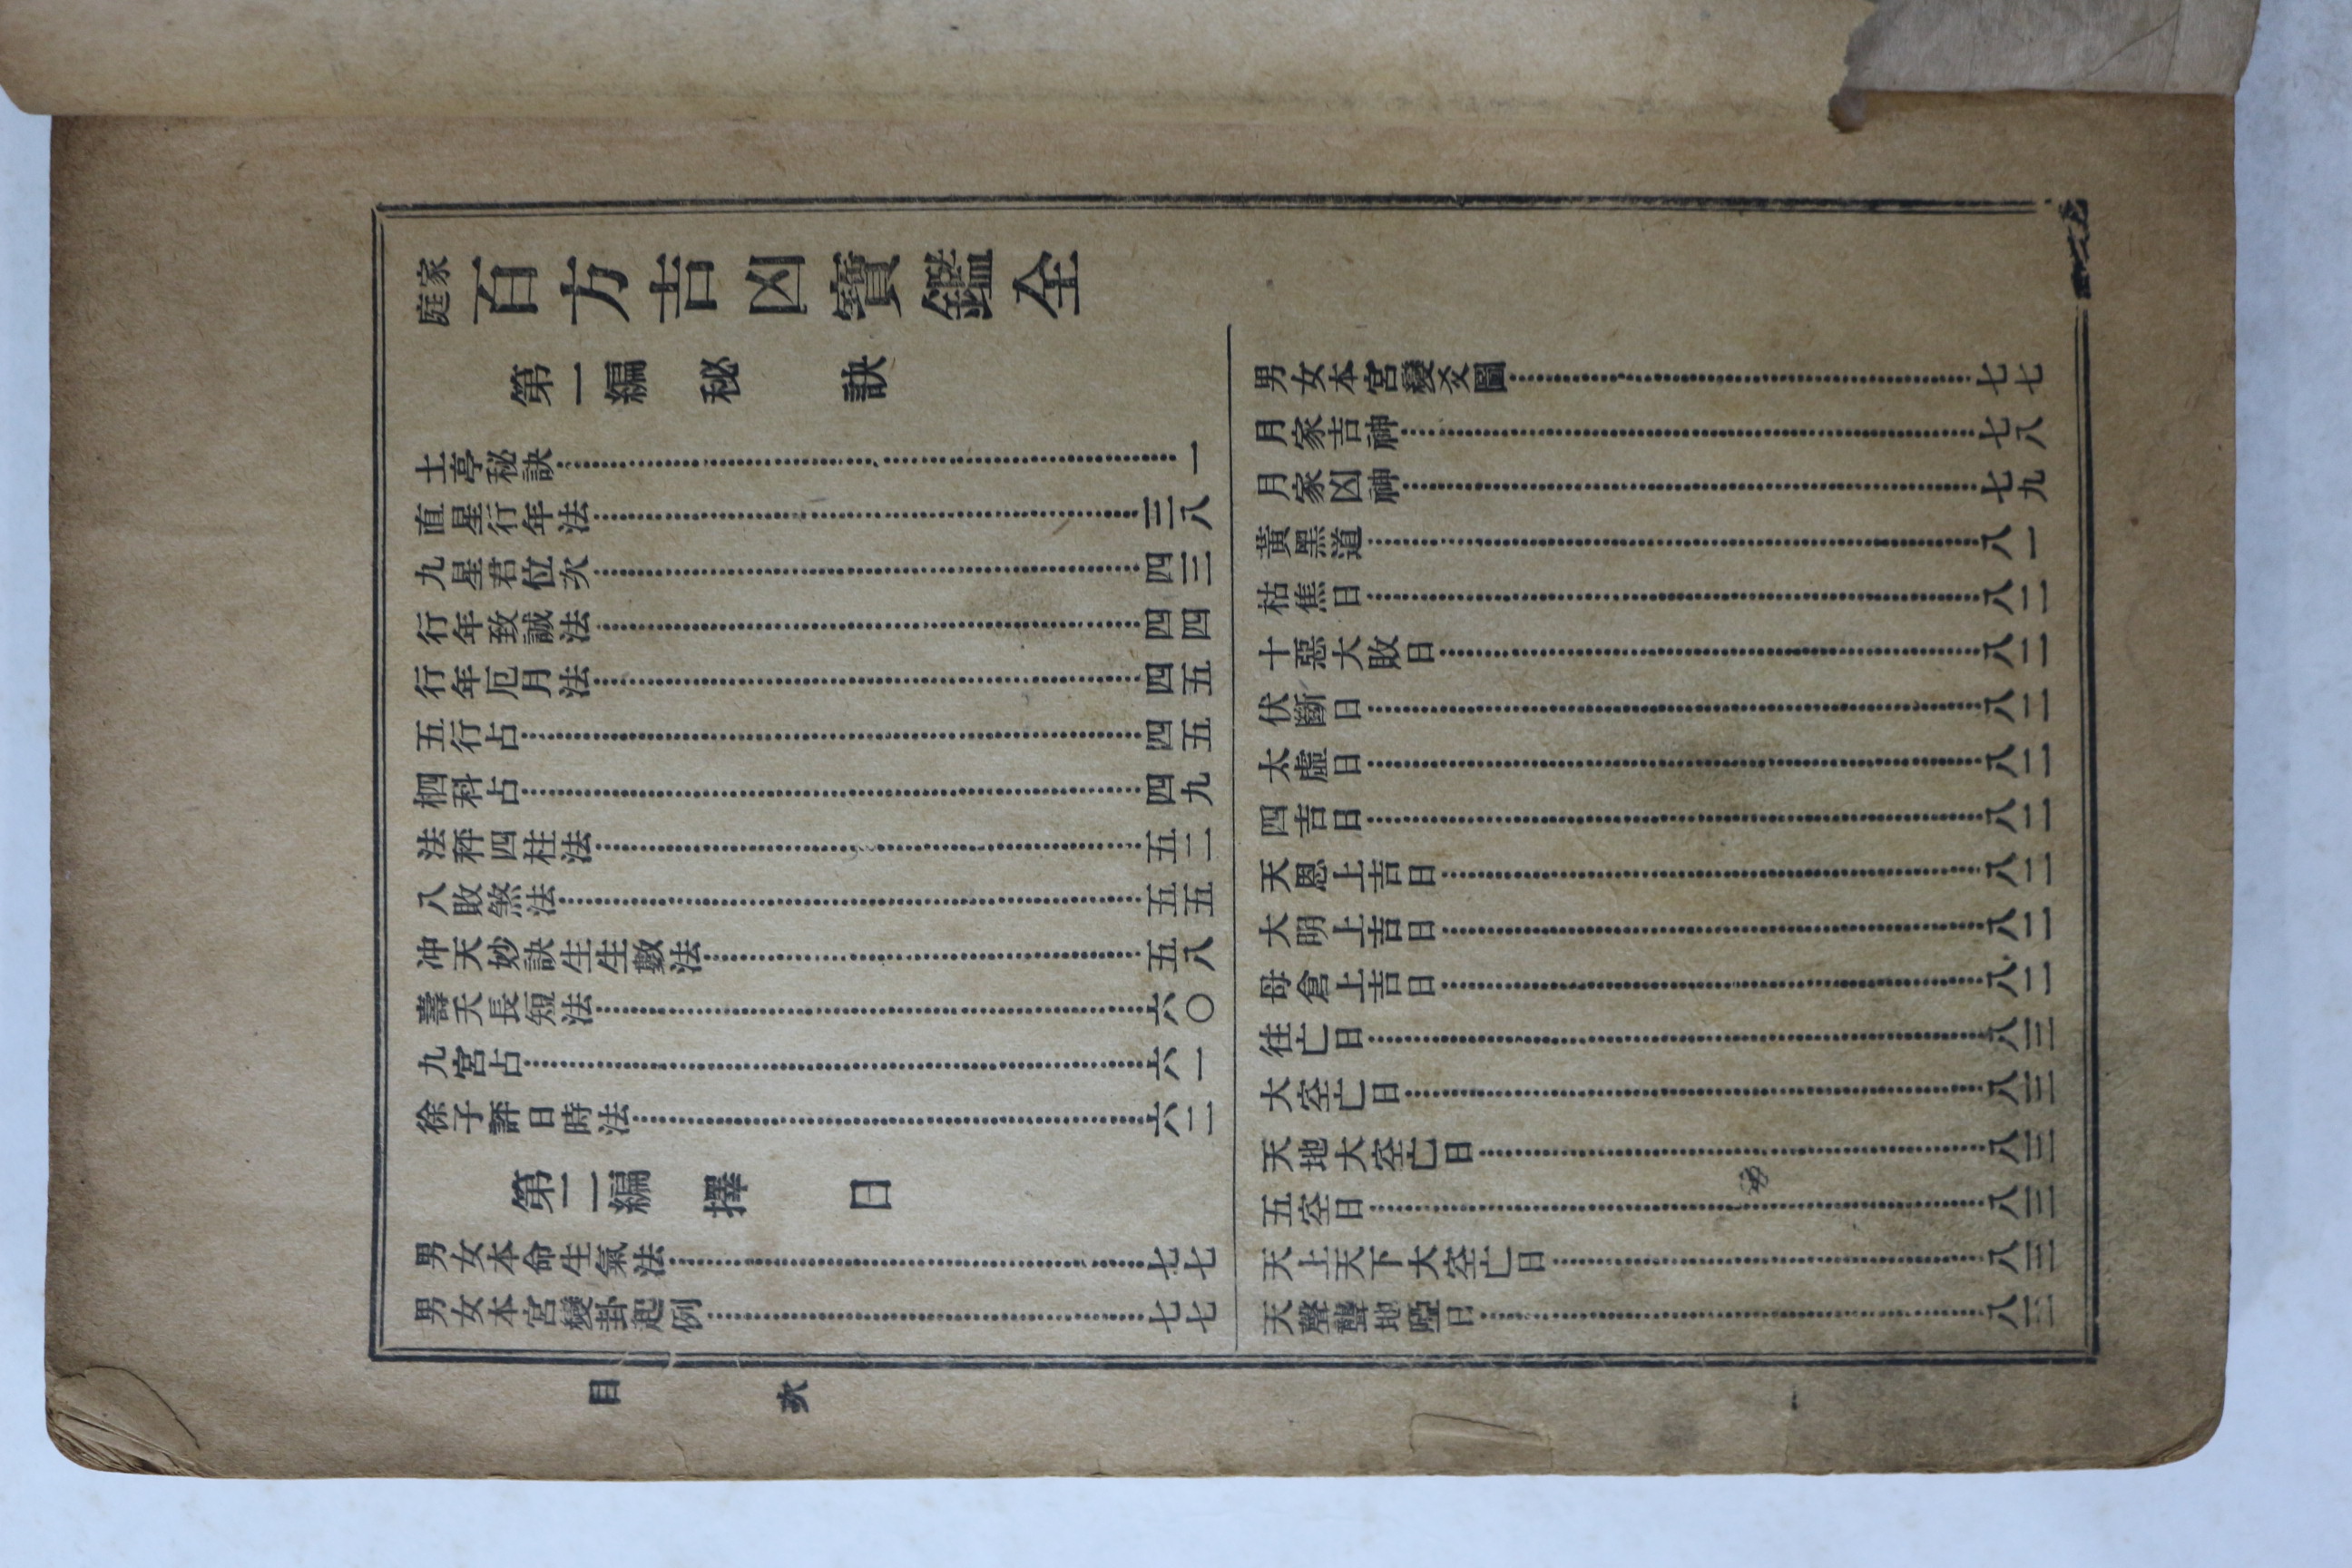 家庭 百方吉凶寶鑑全
第一編 秘訣
土亭秘訣……一
直星行年法……三八
九星君位次……四三
行年致誠法……四四
行年厄月法……四五
五行占……四五
柶科占……四九
法秤四柱法……五二
八敗煞法……五五
冲天妙訣生生數法……五八
壽夭長短法……六〇
九宮占……六一
徐子評日時法……六二
第二編 擇日
男女本命生氣法……七七
男女本宮變卦起例……七七
男女本宮變爻圖……七七
月家吉神……七八
月家凶神……七九
黃黑道……八一
枯焦日……八二
十惡大敗日……八二
伏斷日……八二
太虛日……八二
四吉日……八二
天恩上吉日……八二
大明上吉日……八二
母倉上吉日……八二
往亡日……八三
大空亡日……八三
天地大空亡日……八三
五空日……八三
天上天下大空亡日……八三
天聾地啞日……八三
目次